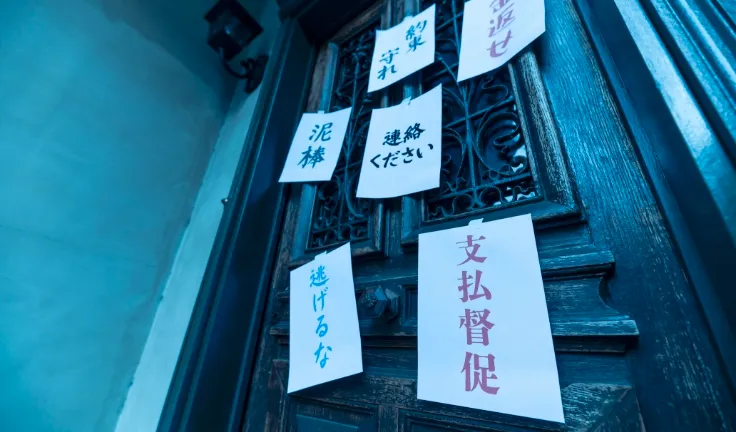 約束
守れ
金返せ
泥棒
連絡
ください
逃げるな
支払督促